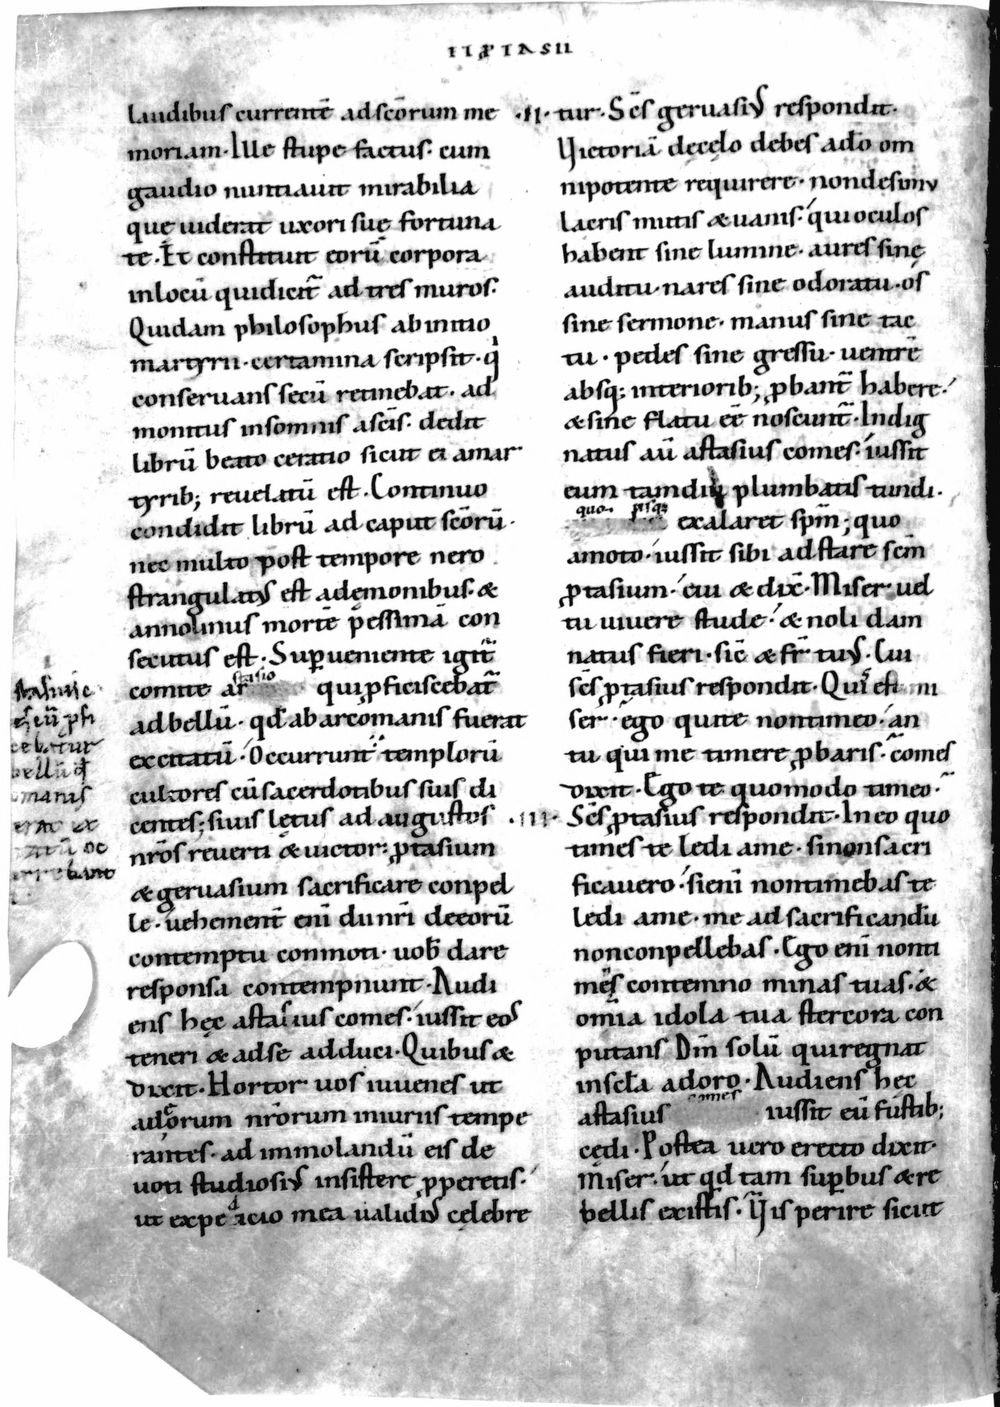 laudibus currentē ad scōrum me
moriam· Ille stupe factus· cum
gaudio nuntiauit mirabilia
quę uiderat uxori suę fortuna
te· Et constituit eorū corpora
in locū qui dicit̄ ad tres muros·
Quidam philosophus ab initio
martyrii· certamina scripsit· q
conseruans secū retinebat· ad
monitus in somnis a sc̄is· dedit
librū beato ceratio sicut ei a mar
tyrib; reuelatū est· Continuo
condidit librū ad caput scōrū·
nec multo post tempore nero
strangulatus est a demonibus· &
annolinus mortē pessimā con
secutus est· Superueniente igit̄
comite astasio qui ꝓficiscebat̄
ad bellū· qd̄ ab arcomanis fuerat
excitatū· Occurrunt templorū
cultores cū sacerdotibus suis di
centes; si uis lętus ad augustos
nrōs reuerti & uictor· ꝓtasium
& geruasium sacrificare conpel
le· uehement̄ enī du nrī deorū
contemptu commoti· uob̄ dare
responsa contempnunt· Audi
ens hęc astasius comes· iussit eos
teneri & ad se adduci· Quibus &
dixit· Hortor uos iuuenes ut
a deorum nr̄orum iniuriis tempe
rantes· ad immolandū eis de
uoti studiosius insistere ꝓperetis·
ut expeditio mea ualidius cęlebre
stasius c
bellū q
manis
·II· tur· Sc̄s geruasius respondit·
Uictoriā de cęlo debes a dō om
nipotente requirere· non de simu
lacris mutis & uanis· qui oculos
habent sine lumine· aures sine
auditu· nares sine odoratu· os
sine sermone· manus sine tac
tu· pedes sine gressu· uentrē
absq; interiorib; ꝓbant̄ habere·
& sine flatu eē noscunt̄· Indig
natus aū astasius comes· iussit
eum tamdiu plumbatis tundi·
quo exalaret sp̄m; quo
amoto· iussit sibi adstare sc̄m
ꝓtasium· cui & dix̄· Miser uel
tu uiuere stude· & noli dam
natus fieri· sic & fr̄ tuus· Cui
sc̄s ꝓtasius respondit· Quis est mi
ser· ego qui te non timeo· an
tu qui me timere ꝓbaris· comes
dixit· Ego te quomodo timeo·
·III· Sc̄s ꝓtasius respondit· In eo quo
times te ledi a me· si non sacri
ficauero· si enī non timebas te
ledi a me· me ad sacrificandū
non conpellebas· Ego enī non ti
mens contemno minas tuas· &
omīa idola tua stercora con
putans Dm̄ solū qui regnat
in scl̄a adoro· Audiens hec
astasius comes iussit eū fustib;
cędi· Postea uero erecto dixit·
Miser· ut qd tam superbus & re
bellis existis· Uis perire sicut